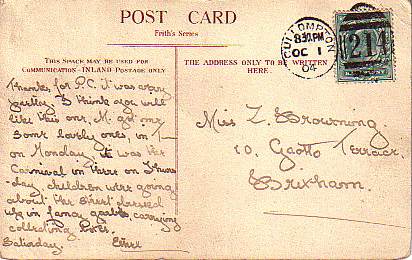 POST CARD
Frith's Series
THIS SPACE MAY BE USED FOR
COMMUNICATION - INLAND POSTAGE ONLY
THE ADDRESS ONLY TO BE WRITTEN
HERE.
CULLOMPTON
8.30PM
OC 1
04
214
Thanks for P.C. it was very
pretty. I think you will
like this one, M. got me
some lovely ones, in
on Monday, it was the
Carnival in there on Thurs-
-day, children were going
about the street dressed
up in fancy garbs carrying
collecting boxes.
Saturday. Ethel
Miss L. Browning.
10, Terrace,
Brixham.